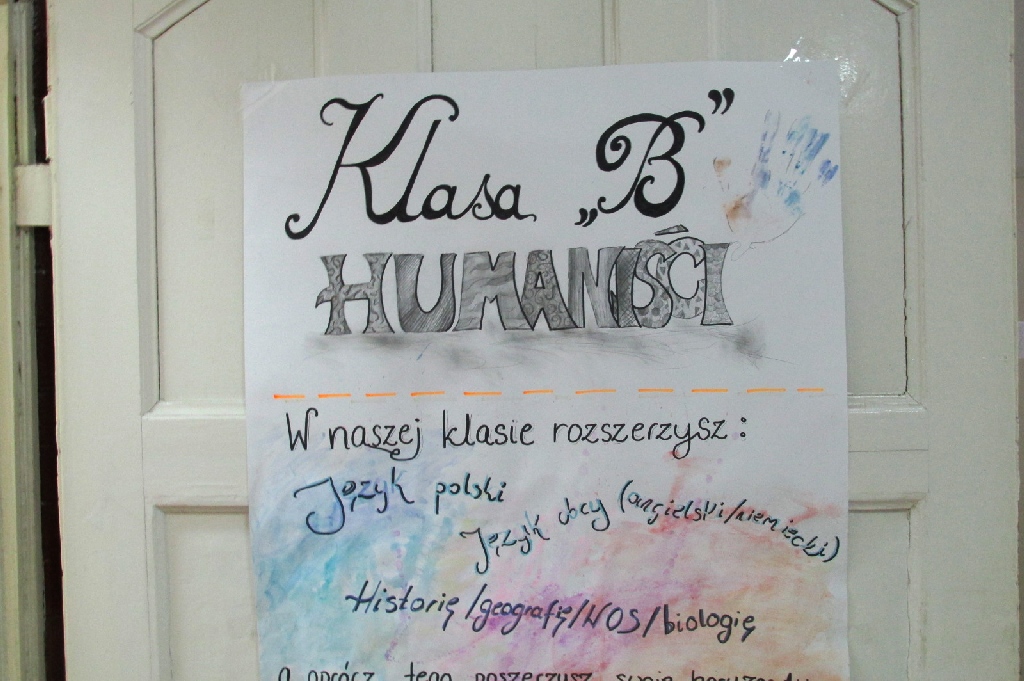 Klasa „B”
HUMANIŚCI
W naszej klasie rozszerzysz:
Język polski
Język obcy (angielski/niemiecki)
Historię/geografię/WOS/biologię
A oprócz tego poszerzysz swoje